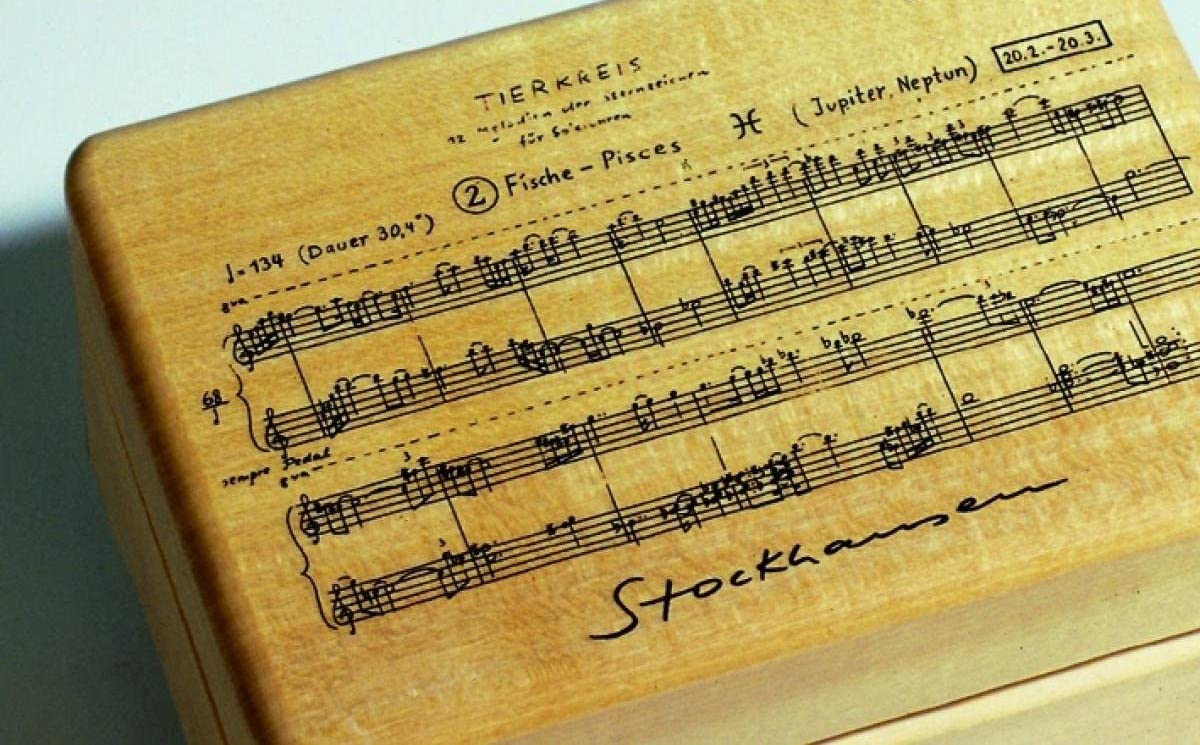 TIERKREIS
12 Melodien der Sternzeichen
für Spieluhren
② Fische – Pisces ♓ (Jupiter, Neptun) 20.2.-20.3.
♩= 134 (Dauer 30,4")
8va
68
sempre Pedal
8va
Stockhausen